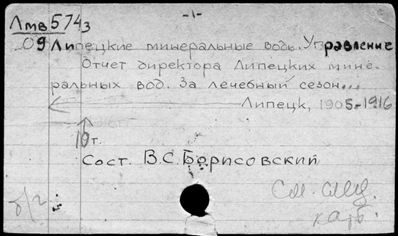 -1-
Лмв 574з
09 Липецкие минеральные воды. Управление
Отчет директора Липецких мине-
ральных вод. За лечебный сезон...
Липецк, 1905-1916
10 т.
Сост. В.С. Борисовский
б/г
См. след.
карт.